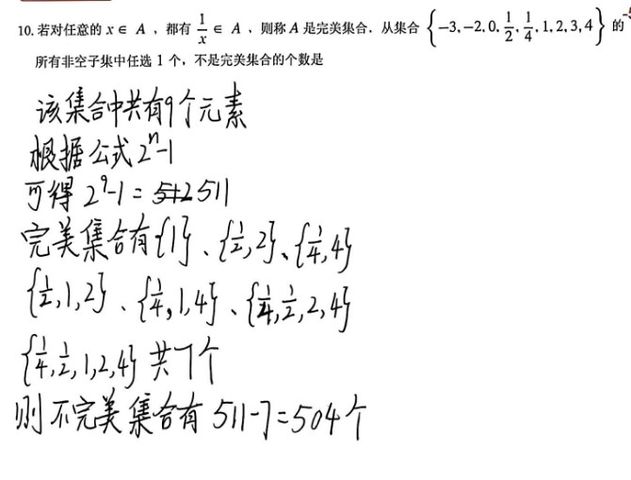 10. 若对任意的 x ∈ A ，都有 1/x ∈ A ，则称 A 是完美集合. 从集合 {-3, -2, 0, 1/2, 1/4, 1, 2, 3, 4} 的
所有非空子集中任选 1 个，不是完美集合的个数是
该集合中共有9个元素
根据公式 2ⁿ-1
可得 2⁹-1 = 512 511
完美集合有{1}、{1/2, 2}、{1/4, 4}
{1/2, 1, 2}、{1/4, 1, 4}、{1/4, 1/2, 2, 4}
{1/4, 1/2, 1, 2, 4} 共7个
则不完美集合有 511-7=504个